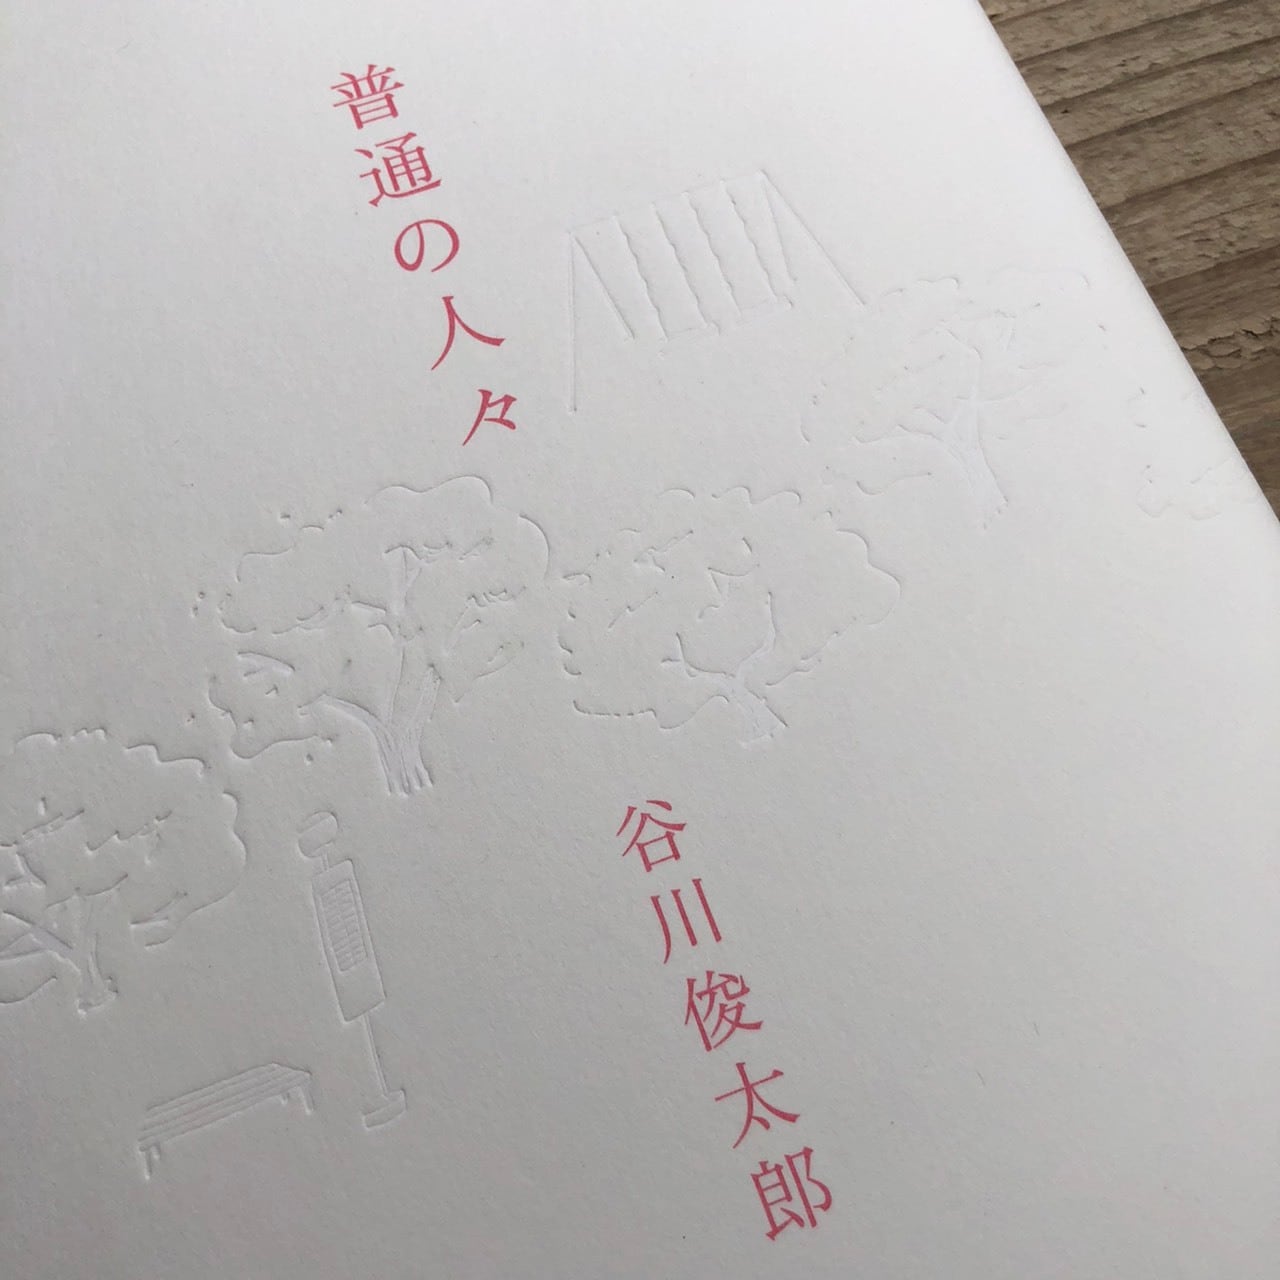 普通の人々
谷川俊太郎